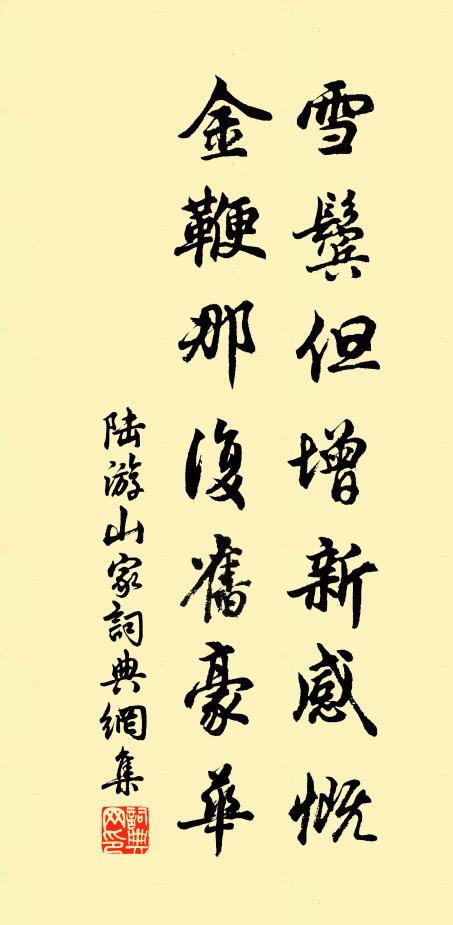 雪鬓但增新感慨
金鞭那復舊豪華
陆游山家詞典網集
詞典網印